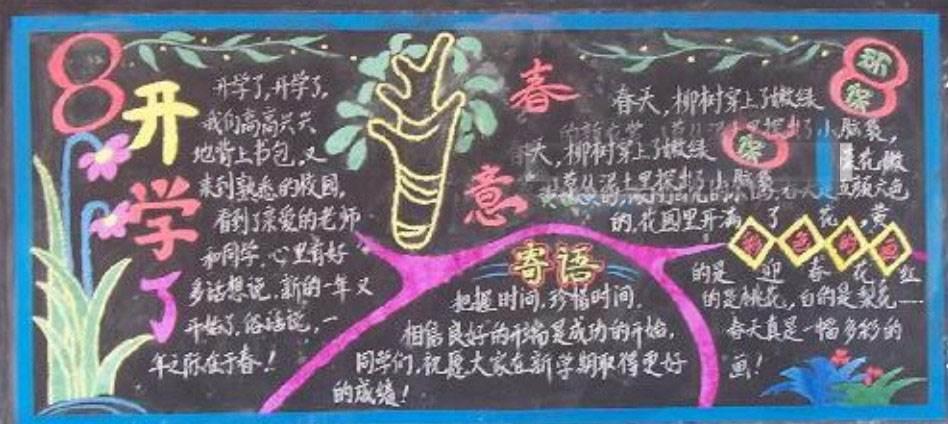 开学了
开学了,开学了,
我们高高兴兴
地背上书包,又
来到熟悉的校园,
看到了亲爱的老师
和同学,心里有好
多话想说,新的一年又
开始了,俗话说,一
年之际在于春!
春意
春天,柳树穿上了嫩绿
探出了小脑袋,
天,柳树穿上了嫩绿
土里探出了小脑袋
五颜六色
的花园里开满了花,黄
的是迎春花红
的是桃花,白的是梨花……
春天真是一幅多彩的
画!
寄语
把握时间,珍惜时间,
相信良好的开端是成功的开始,
同学们,祝愿大家在新学期取得更好
的成绩!